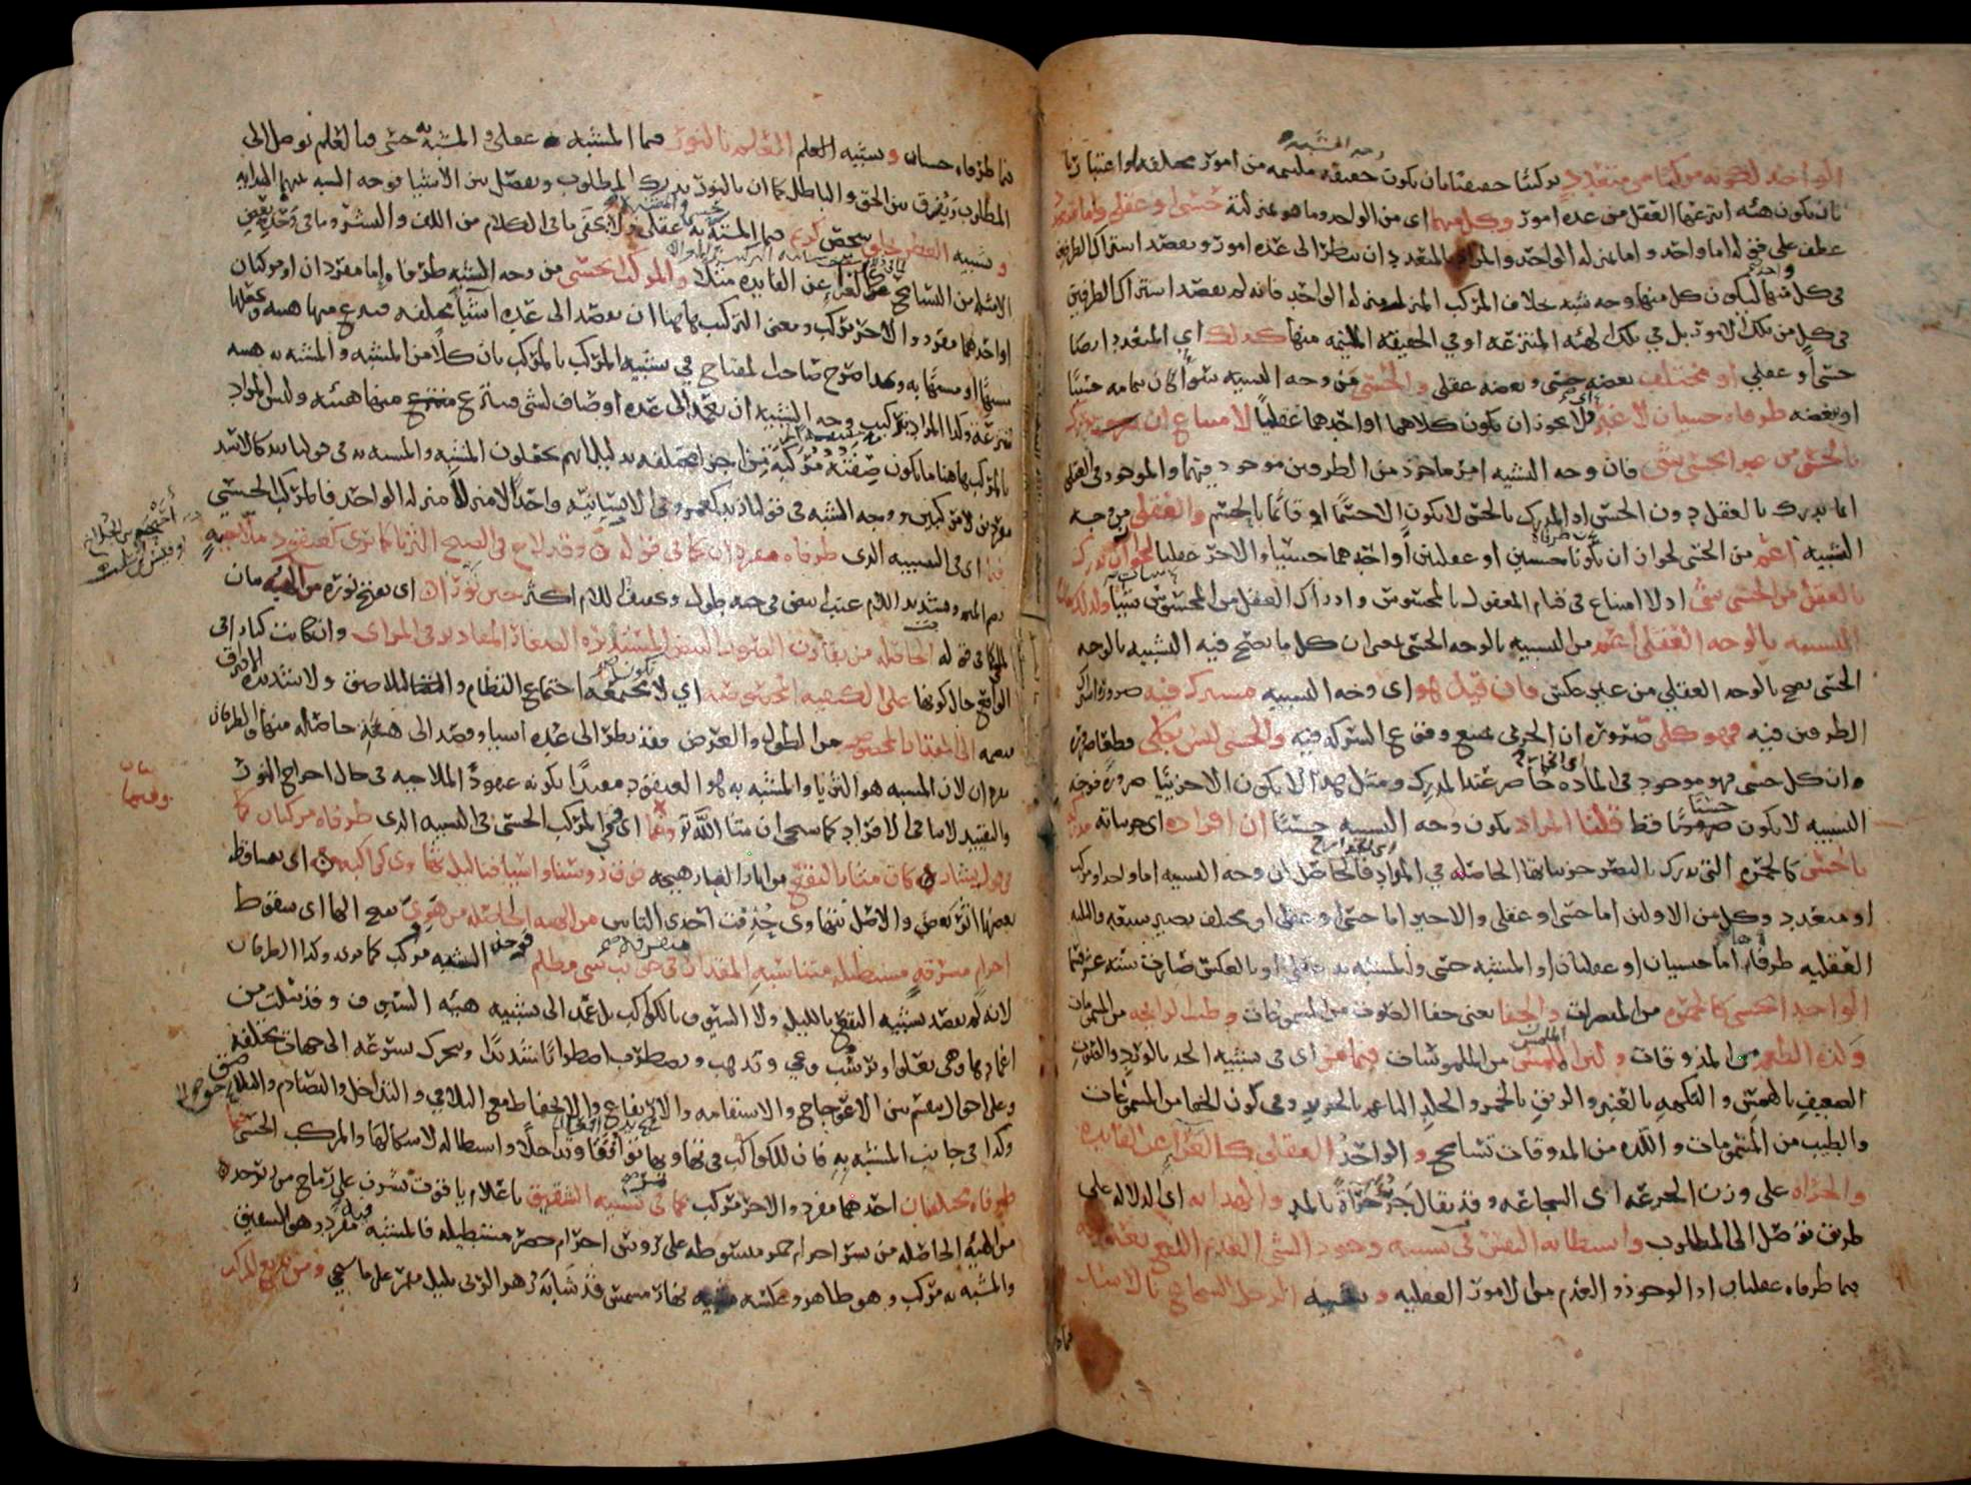 الواحد لكونه مركبا من متعدد تركيبا حقيقيا بان يكون حقيقة ملتئمة من امور مختلفة او اعتباريا
بان يكون هيئة انتزعها العقل من عدة امور وكل منهما اى من الواحد وما هو بمنزلته حسى او عقلى واما متعدد
عطف على قوله اما واحد واما بمنزلة الواحد والمراد بالمتعدد ان ينظر الى عدة امور ويقصد اشتراك الطرفين
فى كل منها ليكون كل منها وجه شبه بخلاف المركب المنزل منزلة الواحد فانه لم يقصد اشتراك الطرفين
فى كل من تلك الامور بل في تلك الهيئة المنتزعة او في الحقيقة الملتئمة منها كذلك اي المتعدد ايضا
حسى او عقلي او مختلف بعضه حسى وبعضه عقلى والحسى من وجه التشبيه سواء كان بتمامه حسيا
او ببعضه طرفاه حسيان لا غير فلا يجوز ان يكون كلاهما او احدهما عقليا لامتناع ان يدرك
بالحس من غير الحسى شى فان وجه التشبيه امر ماخوذ من الطرفين موجود فيهما والموجود فى العقلى
انما يدرك بالعقل دون الحس اذ المدرك بالحس لا يكون الا جسما او قائما بالجسم والعقلى من وجه
التشبيه اعم من الحسى لجواز ان يكونا حسيين او عقليين او احدهما حسيا والاخر عقليا لجواز ان يدرك
بالعقل من الحسى شى اذ لا امتناع فى قيام المعقول بالمحسوس وادراك العقل من المحسوس شيئا ولذلك يقال
التشبيه بالوجه العقلى اعم من التشبيه بالوجه الحسى بمعنى ان كل ما يصح فيه التشبيه بالوجه
الحسى يصح بالوجه العقلي من غير عكس فان قيل هو اى وجه التشبيه مشترك فيه ضرورة اشتراك
الطرفين فيه فهو كلى ضرورة ان الجزئى يمتنع وقوع الشركة فيه والحسى ليس بكلى قطعا ضرورة
ان كل حسى فهو موجود فى المادة حاضر عند المدرك ومثل هذا لا يكون الا جزئيا ضرورة فوجه
التشبيه لا يكون حسيا قط قلنا المراد بكون وجه التشبيه حسيا ان افراده اى جزئياته مدركة
بالحس كالحمرة التى تدرك بالبصر جزئياتها الحاصلة في المواد فالحاصل ان وجه التشبيه اما واحد او مركب
او متعدد وكل من الاولين اما حسى او عقلى والاخير اما حسى او عقلى او مختلف يصير سبعة والثلثة
العقلية طرفاه اما حسيان او عقليان او المشبه حسى والمشبه به عقلى او بالعكس صارت ستة عشر قسما
الواحد الحسى كالحمرة من المبصرات والخفا يعنى خفا الصوت من المسموعات وطيب الرايحة من المشمومات
ولذة الطعم من المذوقات ولين الملمس من الملموسات فيما مر اى فى تشبيه الخد بالورد والصوت
الضعيف بالهمس والنكهة بالعنبر والريق بالخمر والجلد الناعم بالحرير وفى كون الخفا من المسموعات
والطيب من المشمومات واللذة من المذوقات تسامح والواحد العقلى كالعراء عن الفايدة
والجرأة على وزن الجرعة اى الشجاعة وقد يقال جرؤ جراة بالمد والهداية اى الدلالة على
طريق توصل الى المطلوب واستطابة النفس فى تشبيه وجود الشى العديم النفع بعدمه
فيما طرفاه عقليان اذ الوجود والعدم من الامور العقلية وتشبيه الرجل الشجاع بالاسد
فيما طرفاه حسيان وتشبيه العلم بالنور فيما المشبه عقلى والمشبه به حسى فبالعلم يوصل الى
المطلوب ويفرق بين الحق والباطل كما ان بالنور يدرك المطلوب ويفصل بين الاشيا فوجه الشبه بينهما الهداية
وتشبيه العطر بخلق شخص كريم فيما المشبه حسى والمشبه به عقلى ولا يخفى ما فى الكلام من اللف والنشر وما فى وحدة بعض
الامثلة من التسامح كالعراء عن الفايدة مثلا والمركب الحسى من وجه التشبيه طرفاه اما مفردان او مركبان
او احدهما مفرد والاخر مركب ومعنى التركيب هاهنا ان يقصد الى عدة اشياء مختلفة فينتزع منها هيئة ويجعلها
مشبها او مشبها به وبهذا صرح صاحب المفتاح في تشبيه المركب بالمركب بان كلا من المشبه والمشبه به هيئة
منتزعة وكذا المراد بتركيب وجه التشبيه ان يعمد الى عدة اوصاف لشى فينتزع منها هيئة وليس المراد
بالمركب هاهنا ما يكون حقيقته مركبة من اجزا مختلفة بدليل انهم يجعلون المشبه والمشبه به فى قولنا زيد كالاسد
مفردين لا مركبين ووجه الشبه فى قولنا زيد كعمرو فى الانسانية واحدا لا منزلا منزلة الواحد فالمركب الحسي
فيما اى فى التشبيه الذى طرفاه مفردان كما فى قوله وقد لاح فى الصبح الثريا كما ترى كعنقود ملاحية
بضم الميم وتشديد اللام عنب ابيض فى حبه طول وتخفيف اللام اكثر حين نورا اى تفتح نوره من الهيئة بيان
لما فى قوله كما الحاصلة من تقارن الصور البيض المستديرة الصغار المقادير فى المراى وان كانت كبارا فى
الواقع حال كونها على الكيفية المخصوصة اي لا مجتمعة اجتماع التضام والتلاصق ولا شديدة الافتراق
منضمة الى المقدار المخصوص من الطول والعرض فقد نظر الى عدة اشيا وقصد الى هيئة حاصلة منها والطرفان
مفردان لان المشبه هو الثريا والمشبه به هو العنقود مقيدا بكونه عنقود الملاحية فى حال اخراج النور
والتقييد لا ينافى الافراد كما سيجى ان شا الله تع وفيما اى في المركب الحسى فى التشبيه الذى طرفاه مركبان كما
فى قول بشار كان مثار النقع من اثار الغبار هيجه فوق رؤسنا واسيافنا ليل تهاوى كواكبه اى يتساقط
بعضها اثر بعض والاصل تتهاوى حذفت احدى التائين من الهيئة الحاصلة من هوي بفتح الها اى سقوط
اجرام مشرقة مستطيلة متناسبة المقدار متفرقة فى جوانب شى مظلم فوجه الشبه مركب كما ترى وكذا الطرفان
لانه لم يقصد تشبيه النقع بالليل ولا السيوف بالكواكب بل عمد الى تشبيه هيئة السيوف وقد سلت من
اغمادها وهى تعلو وترسب وتجي وتذهب وتضطرب اضطرابا شديدا وتتحرك بسرعة الى جهات مختلفة
وعلى احوال تنقسم بين الاعوجاج والاستقامة والارتفاع والانخفاض مع التلاقي والتداخل والتصادم والتلاحق
وكذا فى جانب المشبه به فان للكواكب فى تهاويها تواقعا وتداخلا واستطالة لاشكالها والمركب الحسى فيما
طرفاه مختلفان احدهما مفرد والاخر مركب كما فى تشبيه الشقيق باعلام ياقوت نشرن على رماح من زبرجد
من الهيئة الحاصلة من نشر اجرام حمر مبسوطة على رؤس اجرام خضر مستطيلة فالمشبه مفرد وهو الشقيق
والمشبه به مركب وهو ظاهر وعكسه تشبيه نهار مشمس قد شابه زهر الربى بليل مقمر على ما سيجي ومن بديع المركب